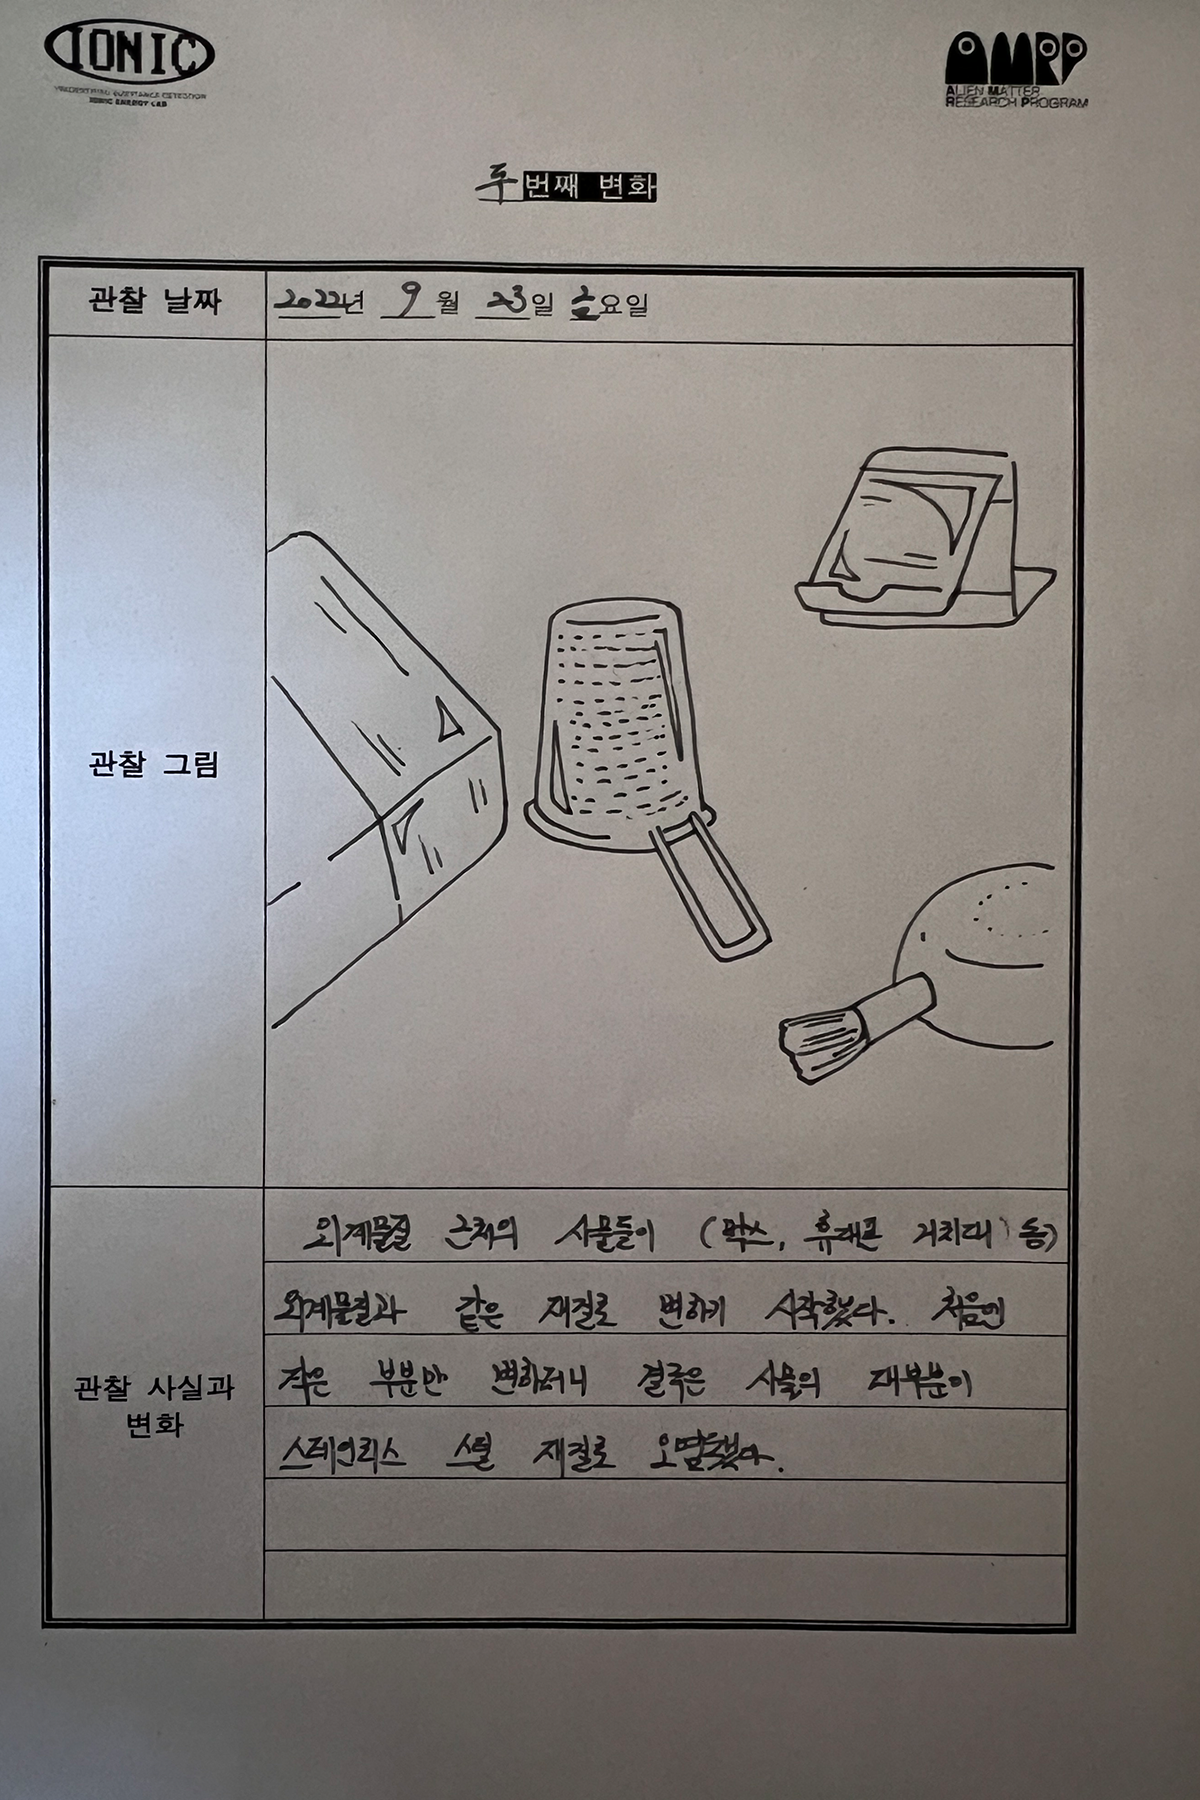 IONIC
IONIC ENERGY LAB
AMRP
ALIEN MATTER
RESEARCH PROGRAM
두번째 변화
관찰 날짜
2022년 9월 23일 금요일
관찰 그림
관찰 사실과
변화
외계물질 근처의 사물들이 (박스, 휴대폰 거치대 등)
외계물질과 같은 재질로 변하기 시작했다. 처음엔
작은 부분만 변하더니 결국은 사물의 대부분이
스테인리스 스틸 재질로 오염됐다.